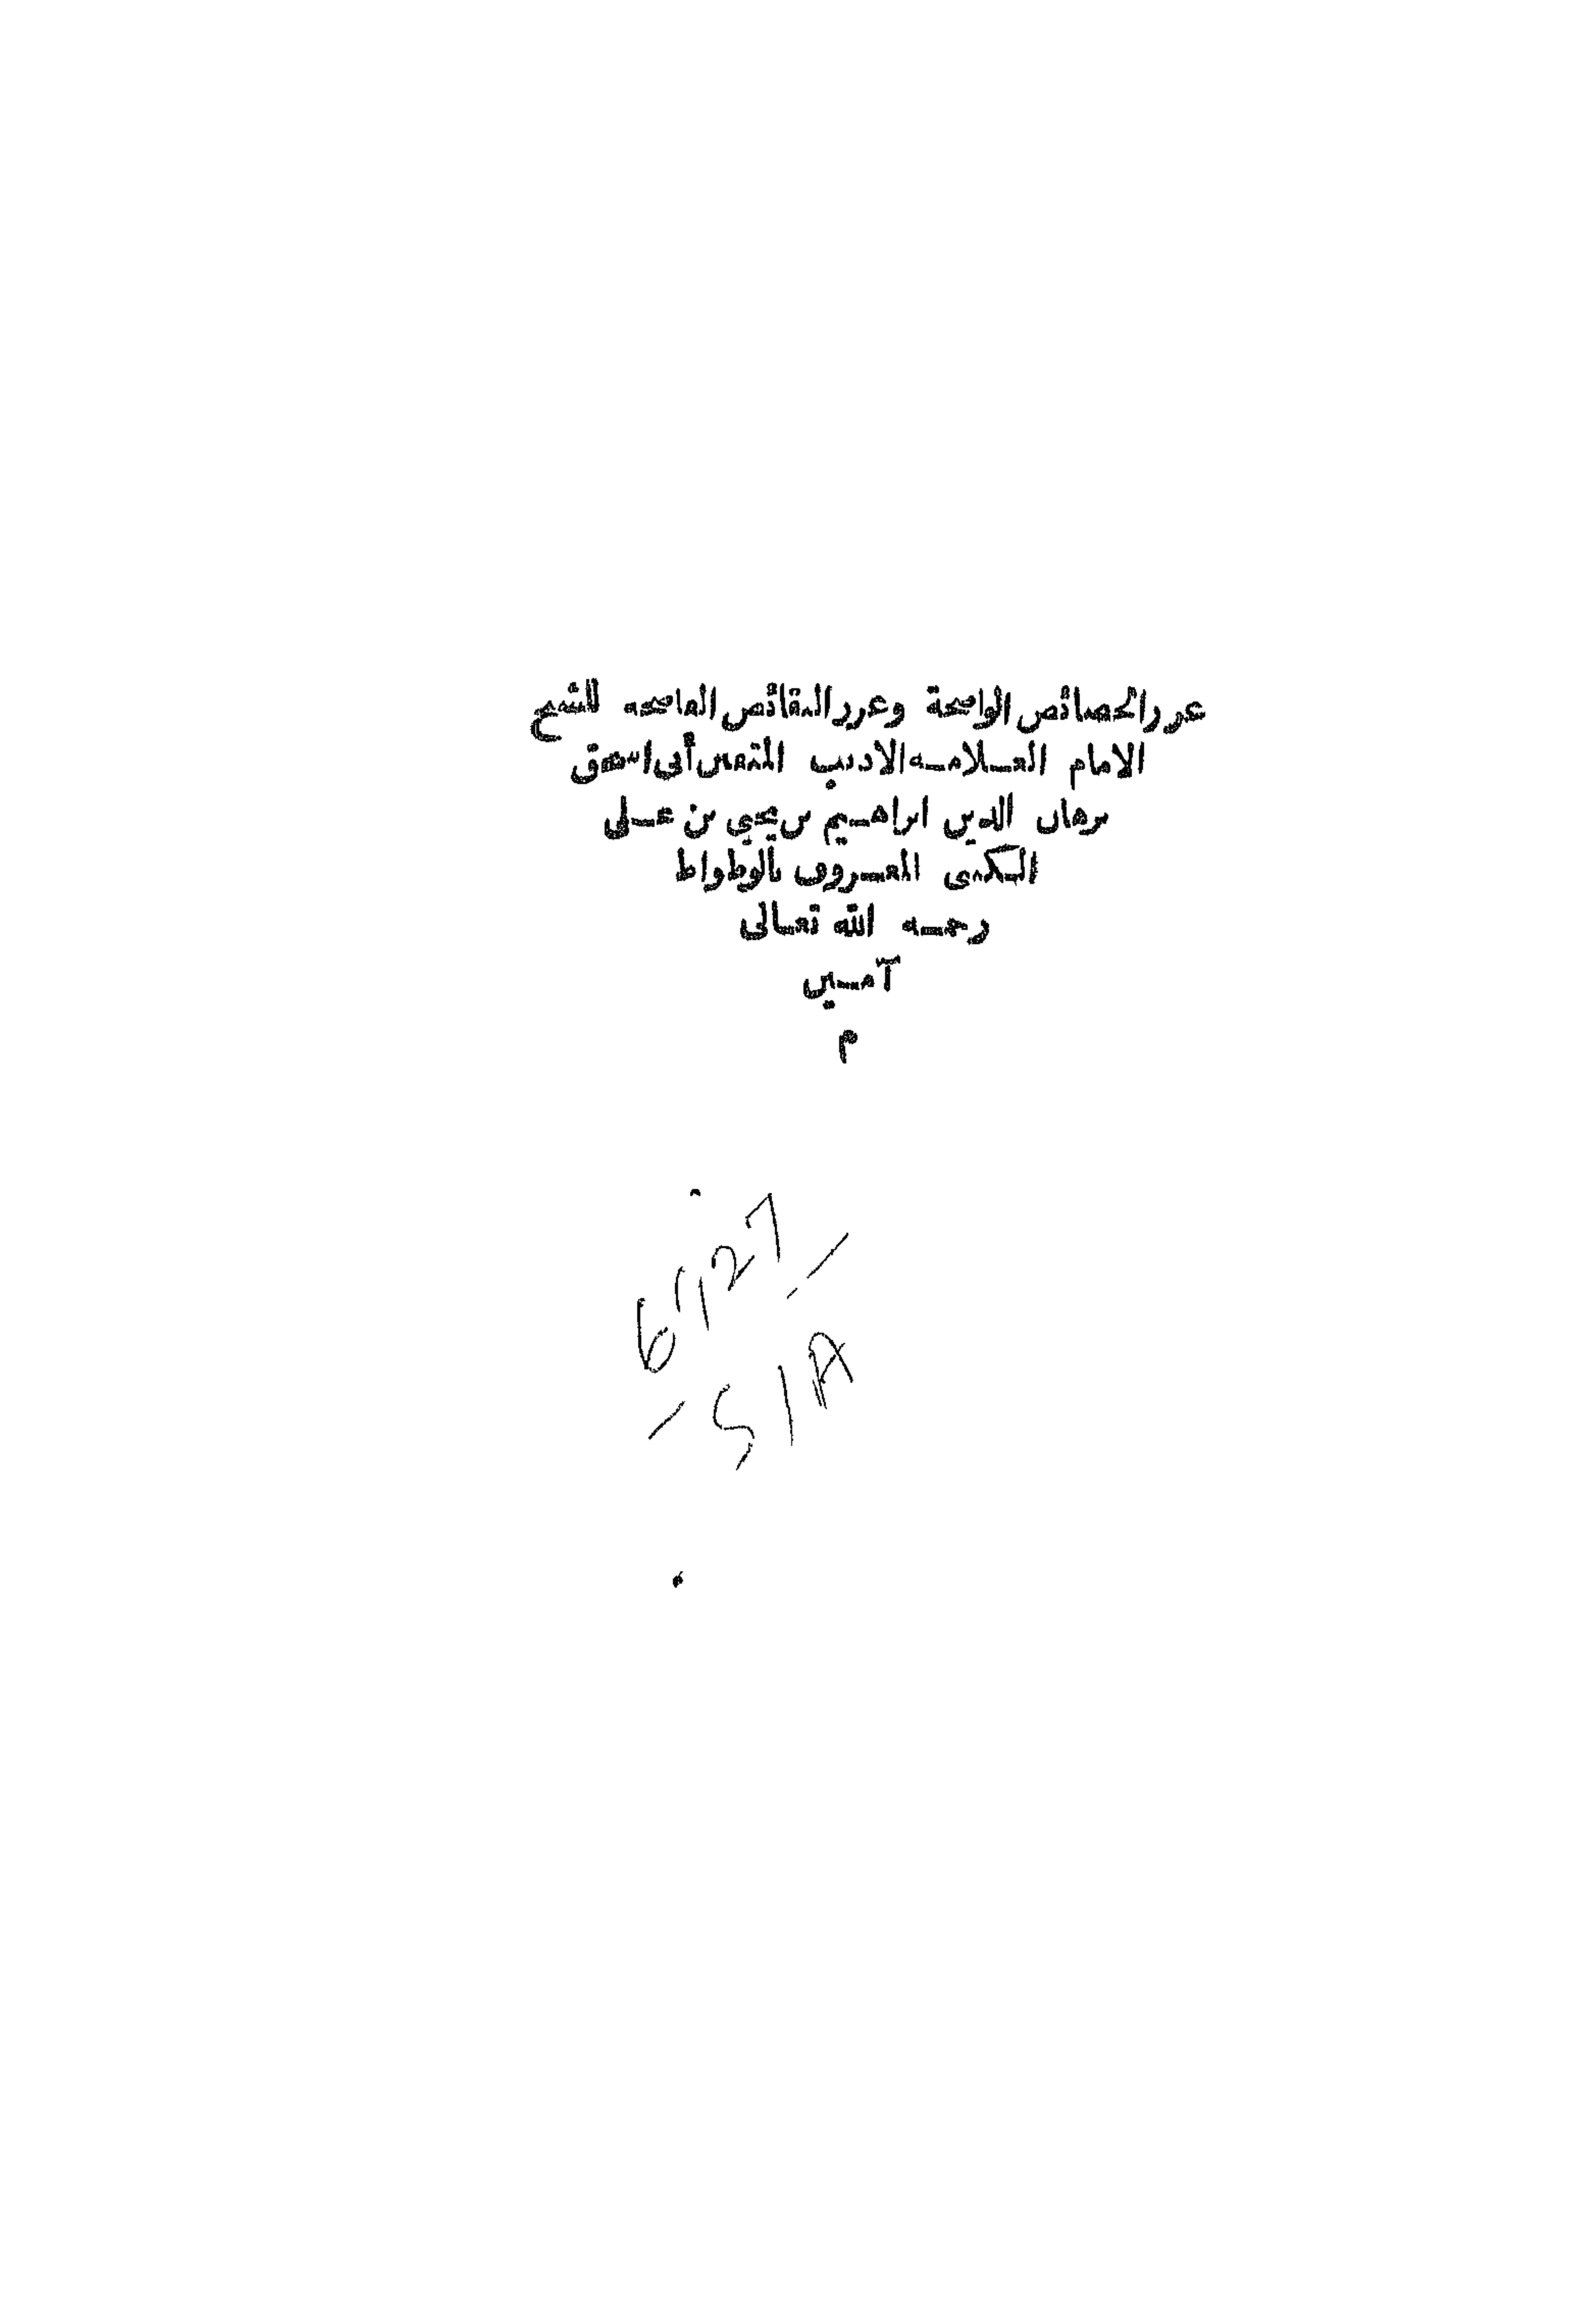 غرر الخصائص الواضحة وعرر النقائص الفاضحه للشيخ
الامام العلامه الاديب المتقن أبى اسحق
برهان الدين ابراهيم بن يحيى بن على
الكتبى المعروف بالوطواط
رحمه الله تعالى
آمين
م
SIA